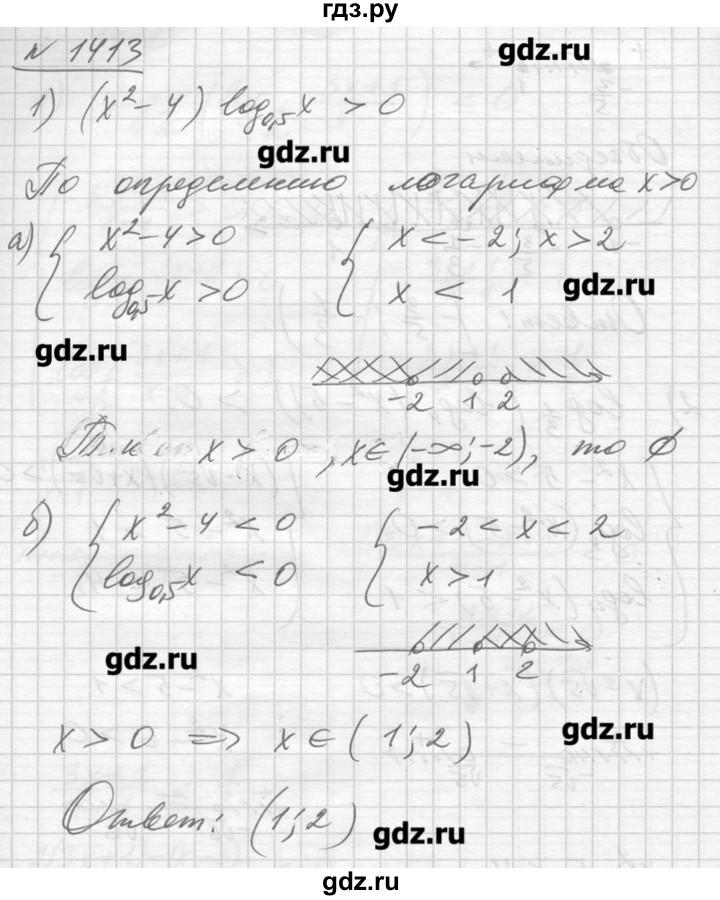 гдз.ру
N 1413
gdz.ru
1) (x²-4) log₀,₅x > 0
gdz.ru
По определению логарифма x>0
а) { x²-4>0 { x<-2; x>2
log₀,₅x >0 x < 1
gdz.ru
gdz.ru
-2 1 2
Т.к x>0, x∈(-∞;-2), то ∅
gdz.ru
б) { x²-4<0 { -2<x<2
log₀,₅x <0 x>1
gdz.ru
-2 1 2
x>0 => x∈(1;2)
gdz.ru
Ответ: (1;2)
gdz.ru
gdz.ru